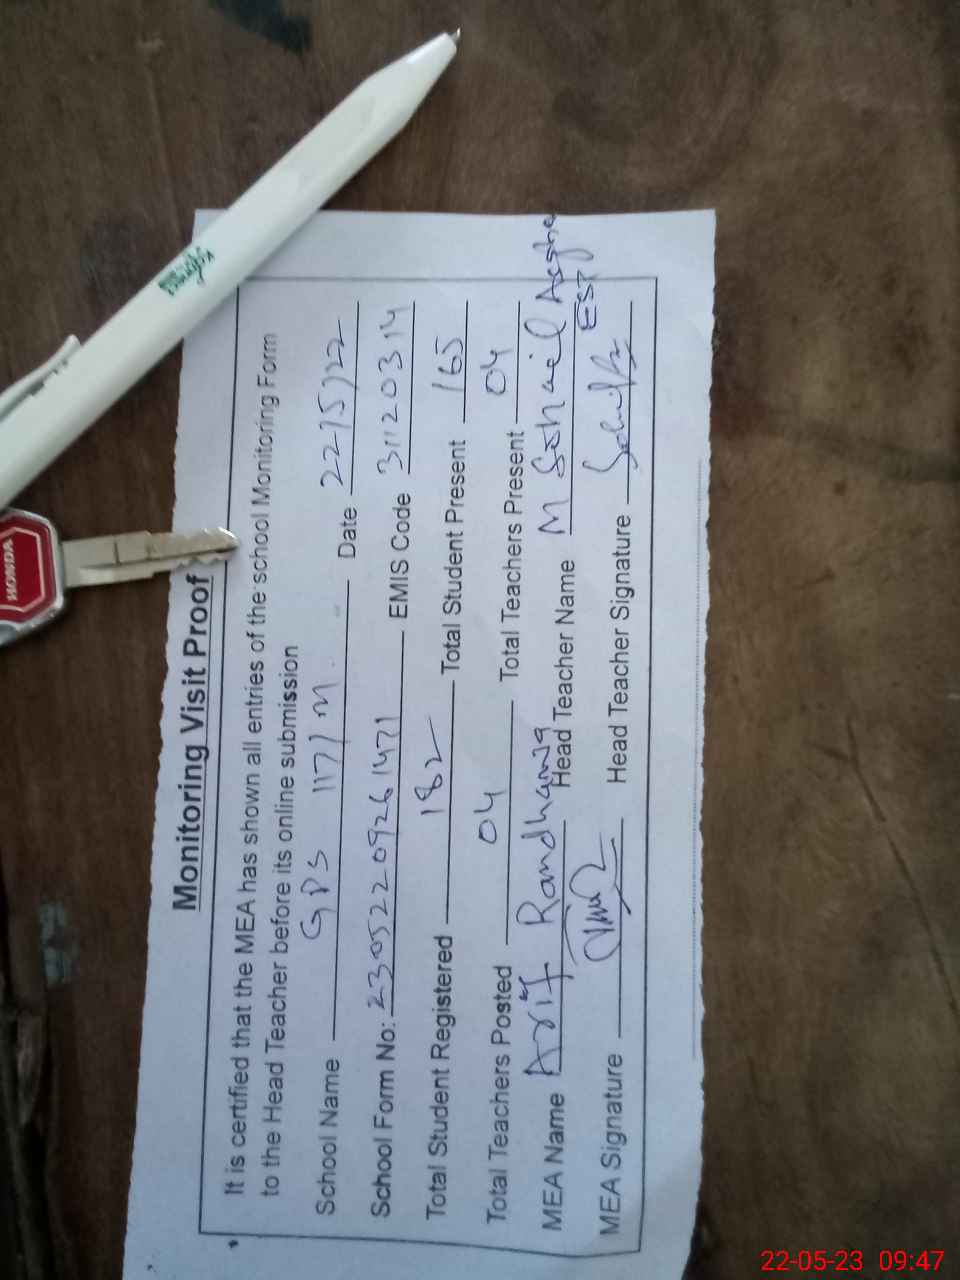 Monitoring Visit Proof
It is certified that the MEA has shown all entries of the school Monitoring Form
to the Head Teacher before its online submission
School Name GPS 117/M. Date 22/5/22
School Form No: 23052209261471 EMIS Code 31120314
Total Student Registered 182 Total Student Present 165
Total Teachers Posted 04 Total Teachers Present 04
MEA Name Arif Randhawa Head Teacher Name M Sohail
EST
MEA Signature Head Teacher Signature
HONDA
22-05-23 09:47